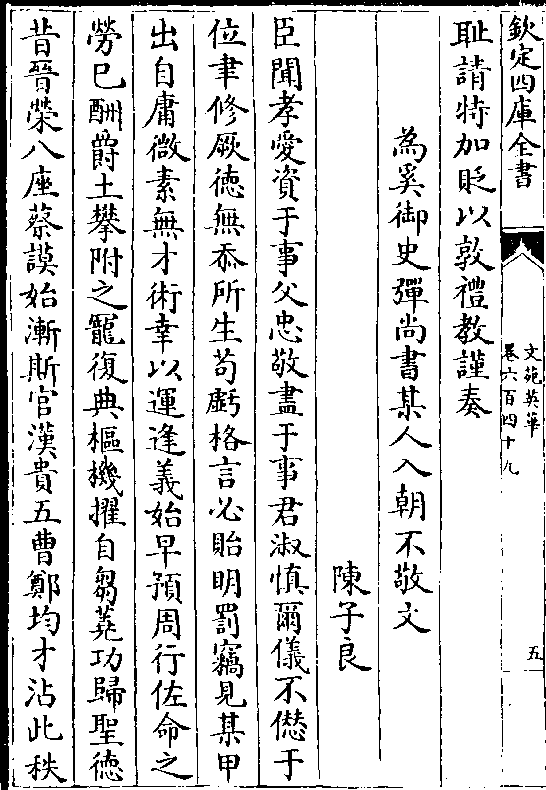 欽定四庫全書
文苑英華
卷六百四十九
五
耻請特加貶以敦禮教謹奏
為奚御史彈尚書某人入朝不敬文
陳子良
臣聞孝愛資于事父忠敬盡于事君淑慎爾儀不愆于
位聿修厥徳無忝所生苟虧格言必貽明罰竊見某甲
出自庸微素無才術幸以運逢義始早預周行佐命之
勞已酬爵土攀附之寵復典樞機擢自芻蕘功歸聖徳
昔晉榮八座蔡謨始漸斯官漢貴五曹鄭均才沾此秩